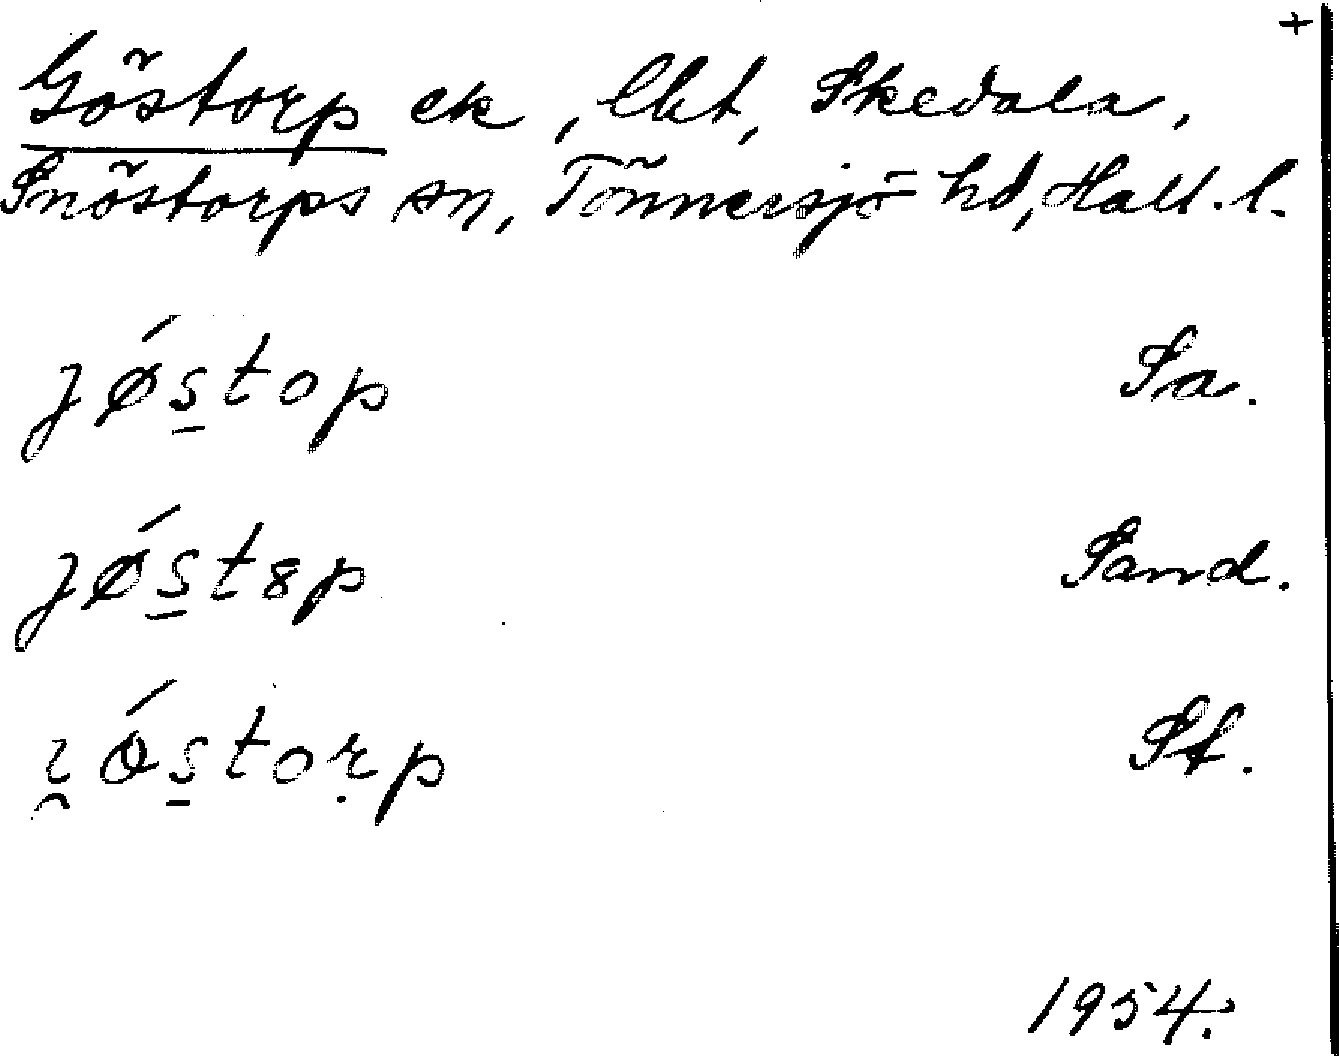 +
Göstorp ek, lht, Skedala,
Snöstorps sn, Tönnersjö hd, Hall. l.
jǿs̲top Sa.
jǿs̲tɞp Sand.
ɿ̯ǿs̲torp Sf.
1954.